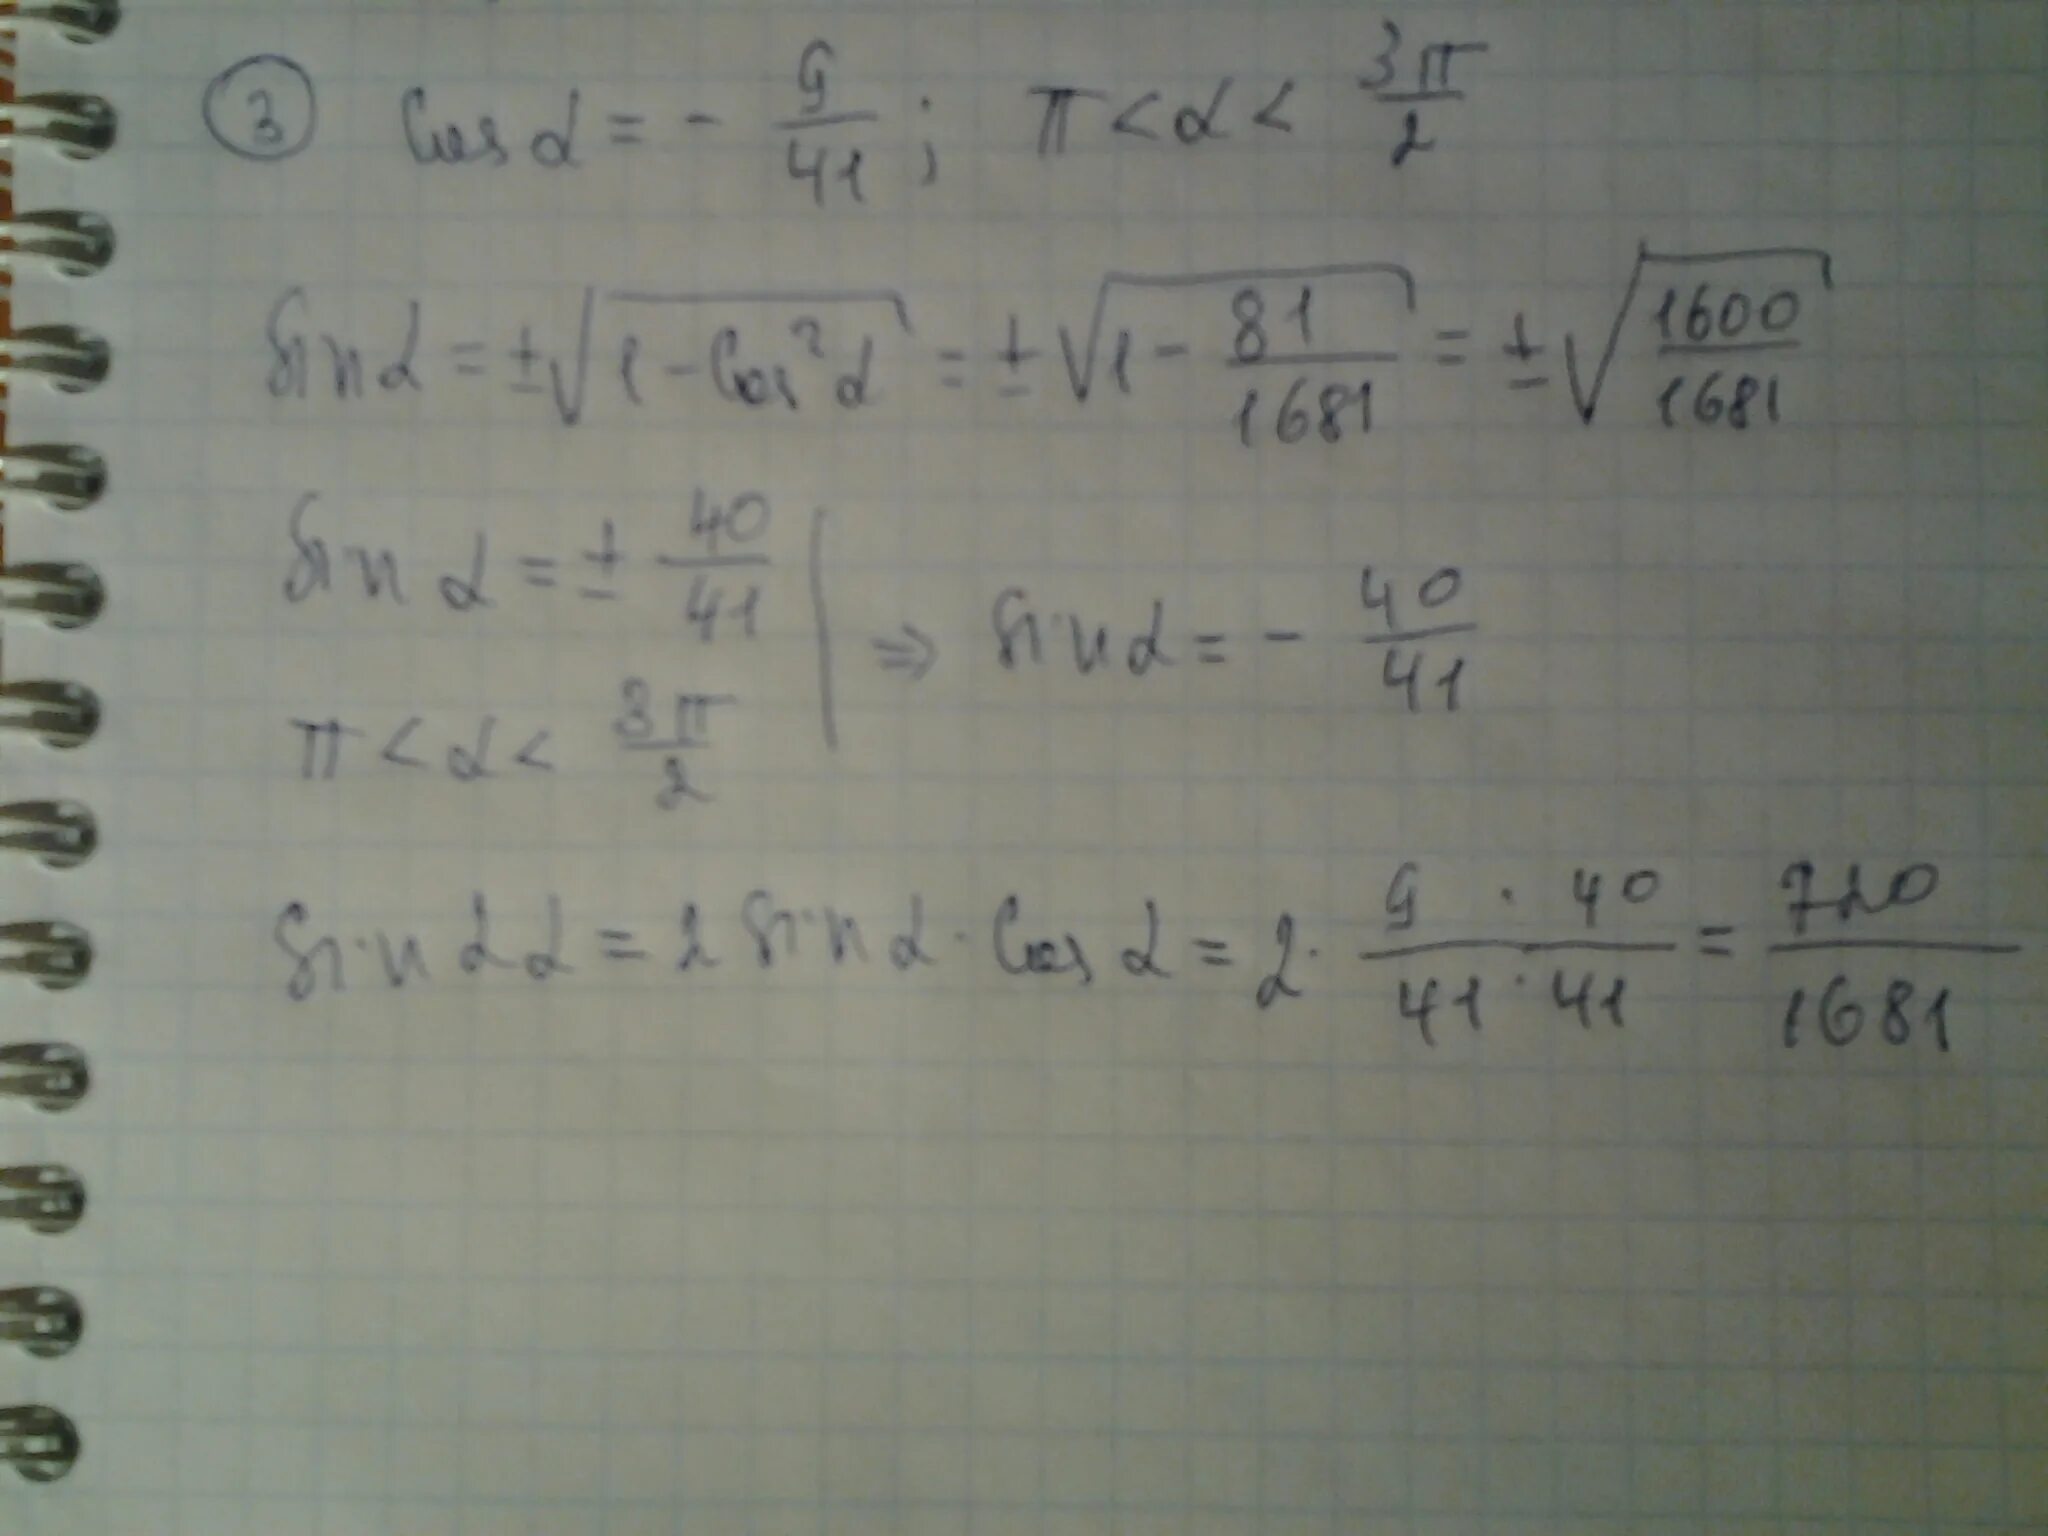 3 cos α = - 9/41 ; π < α < 3π/2
sin α = ±√(1 - cos² α) = ±√(1 - 81/1681) = ±√(1600/1681)
sin α = ± 40/41 | ⇒ sin α = - 40/41
π < α < 3π/2
sin 2α = 2 sin α · cos α = 2 · (9 · 40)/(41 · 41) = 720/1681